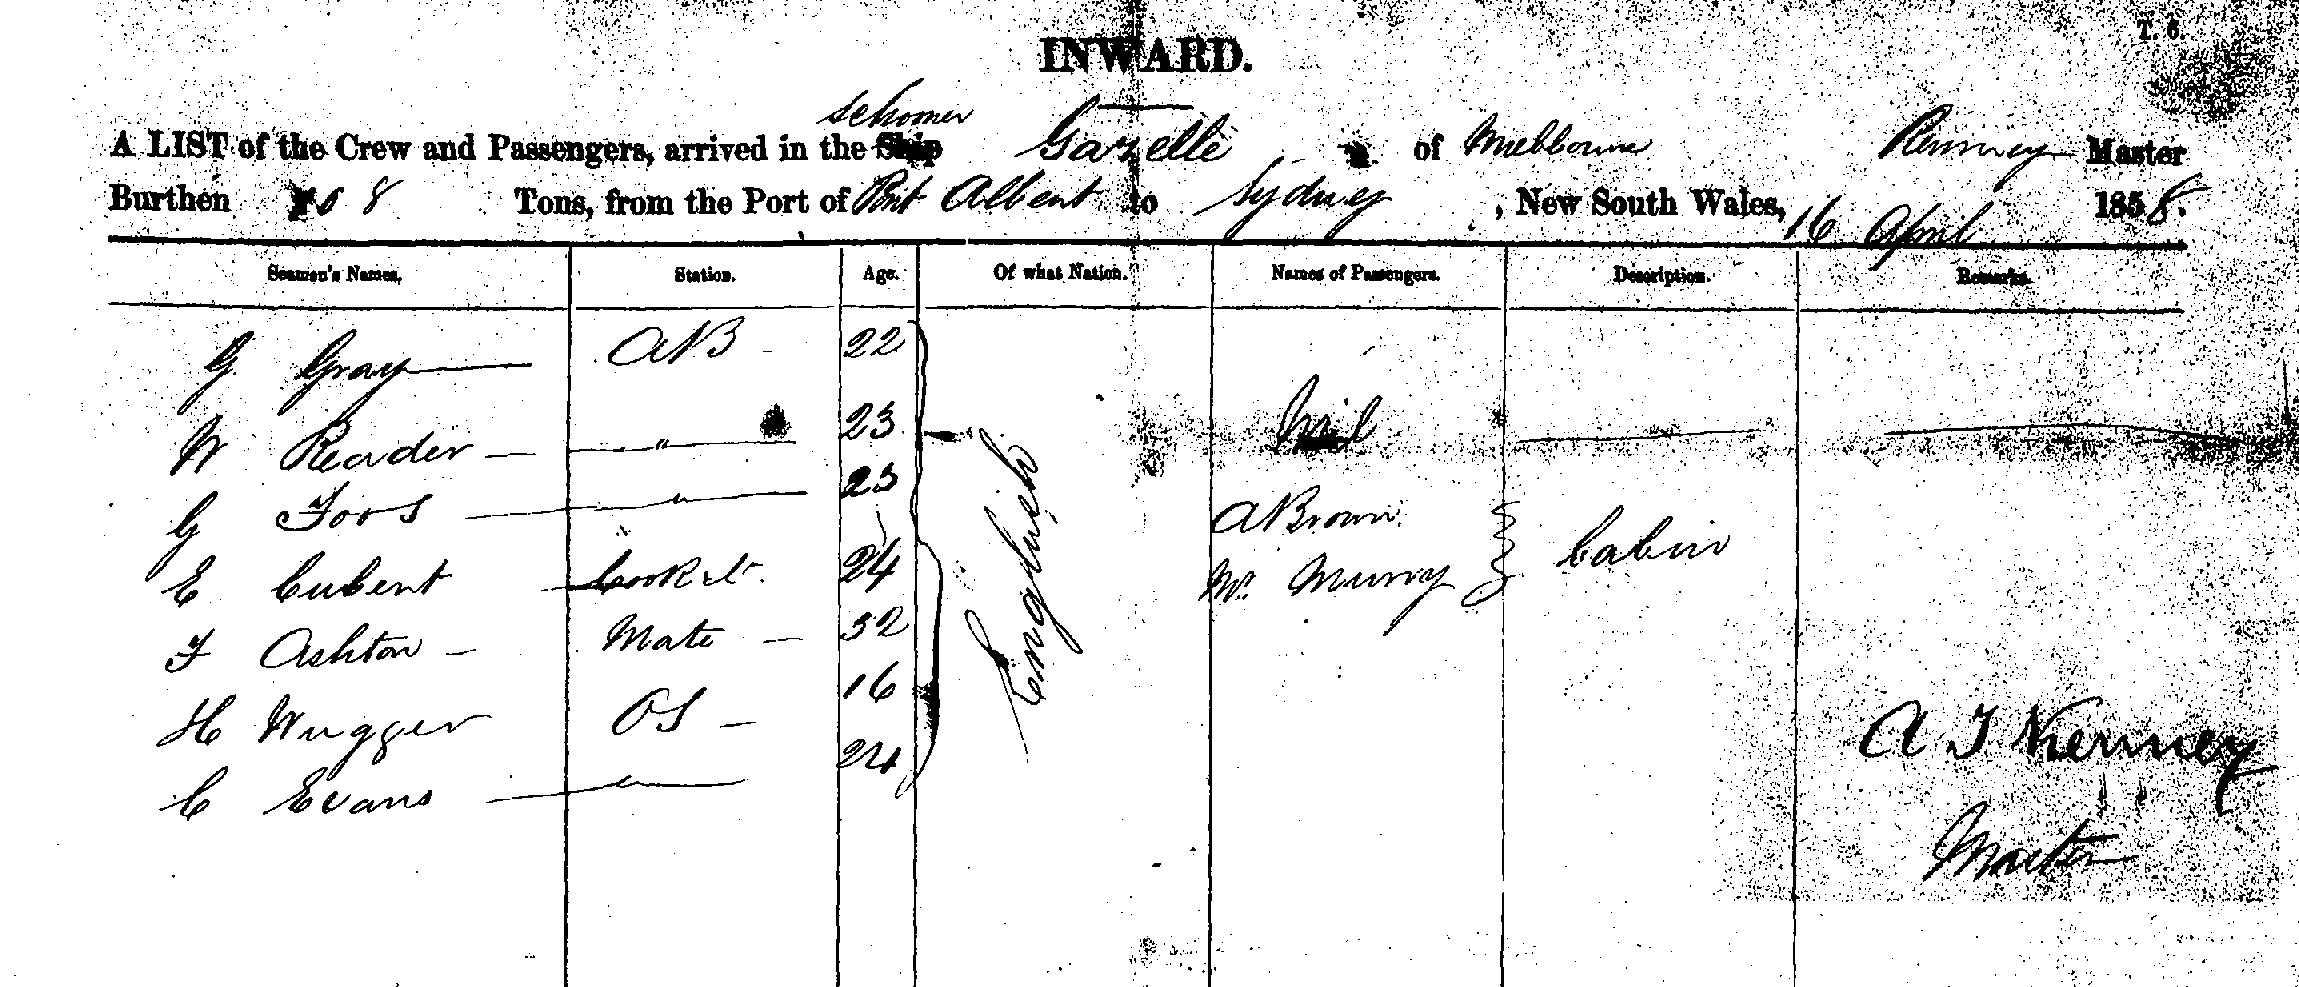 T. 6.
INWARD.
schooner
A LIST of the Crew and Passengers, arrived in the Ship Gazelle of Melbourne Kenney Master
Burthen 108 Tons, from the Port of Port Albert to Sydney, New South Wales, 16 April 1858.
Seamen's Names. Station. Age. Of what Nation. Names of Passengers. Description. Remarks.
G Gray AB 22
W Reader " 23 Nil
G Foos " 23 A Brown
E Cubent Cook &c. 24 English Mr. Murray Cabin
F Ashton Mate 32
H Wugger OS 16
C Evans " 24
A J Kenney
Master